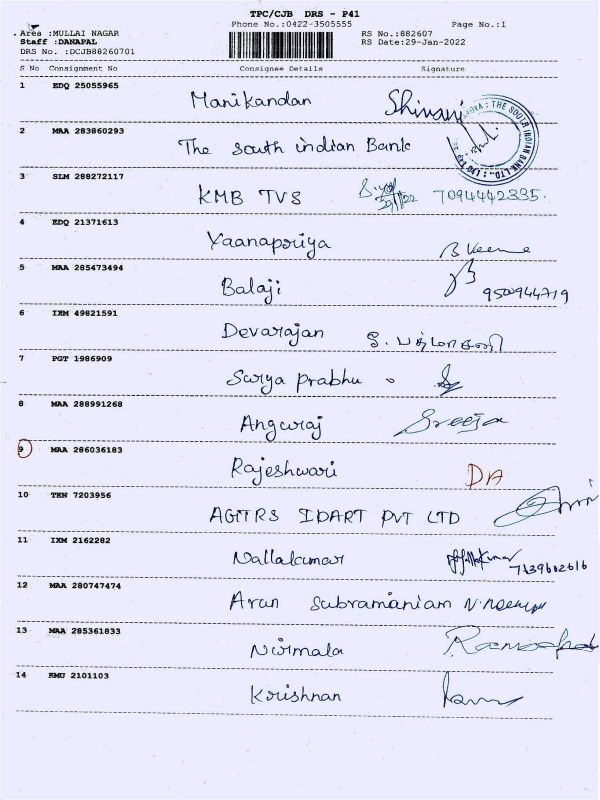 TPC/CJB DRS - P41
Phone No.:0422-3505555
Page No.:1
Area :MULLAI NAGAR
RS No.:882607
Staff :DANAPAL
RS Date:29-Jan-2022
DRS No. :DCJB88260701
S No Consignment No Consignee Details Signature
1 EDQ 25055965 Manikandan Shivani
THE SOUTH INDIAN BANK LTD.
2 MAA 283860293 The south indian Bank
3 SLM 288272117 KMB TVS 7094442335.
4 EDQ 21371613 Yaanapriya B Veena
5 MAA 285473494 Balaji
9500944719
6 IXM 49821591 Devarajan
7 PGT 1986909 Surya prabhu
8 MAA 288991268 Anguraj Sreeja
9 MAA 286036183 Rajeshwari DA
10 TEN 7203956 AGITRS IDART PVT LTD
11 IXM 2162282 Nallakumar
12 MAA 280747474 Arun Subramaniam
13 MAA 285361833 Nirmala
14 KMU 2101103 Krishnan